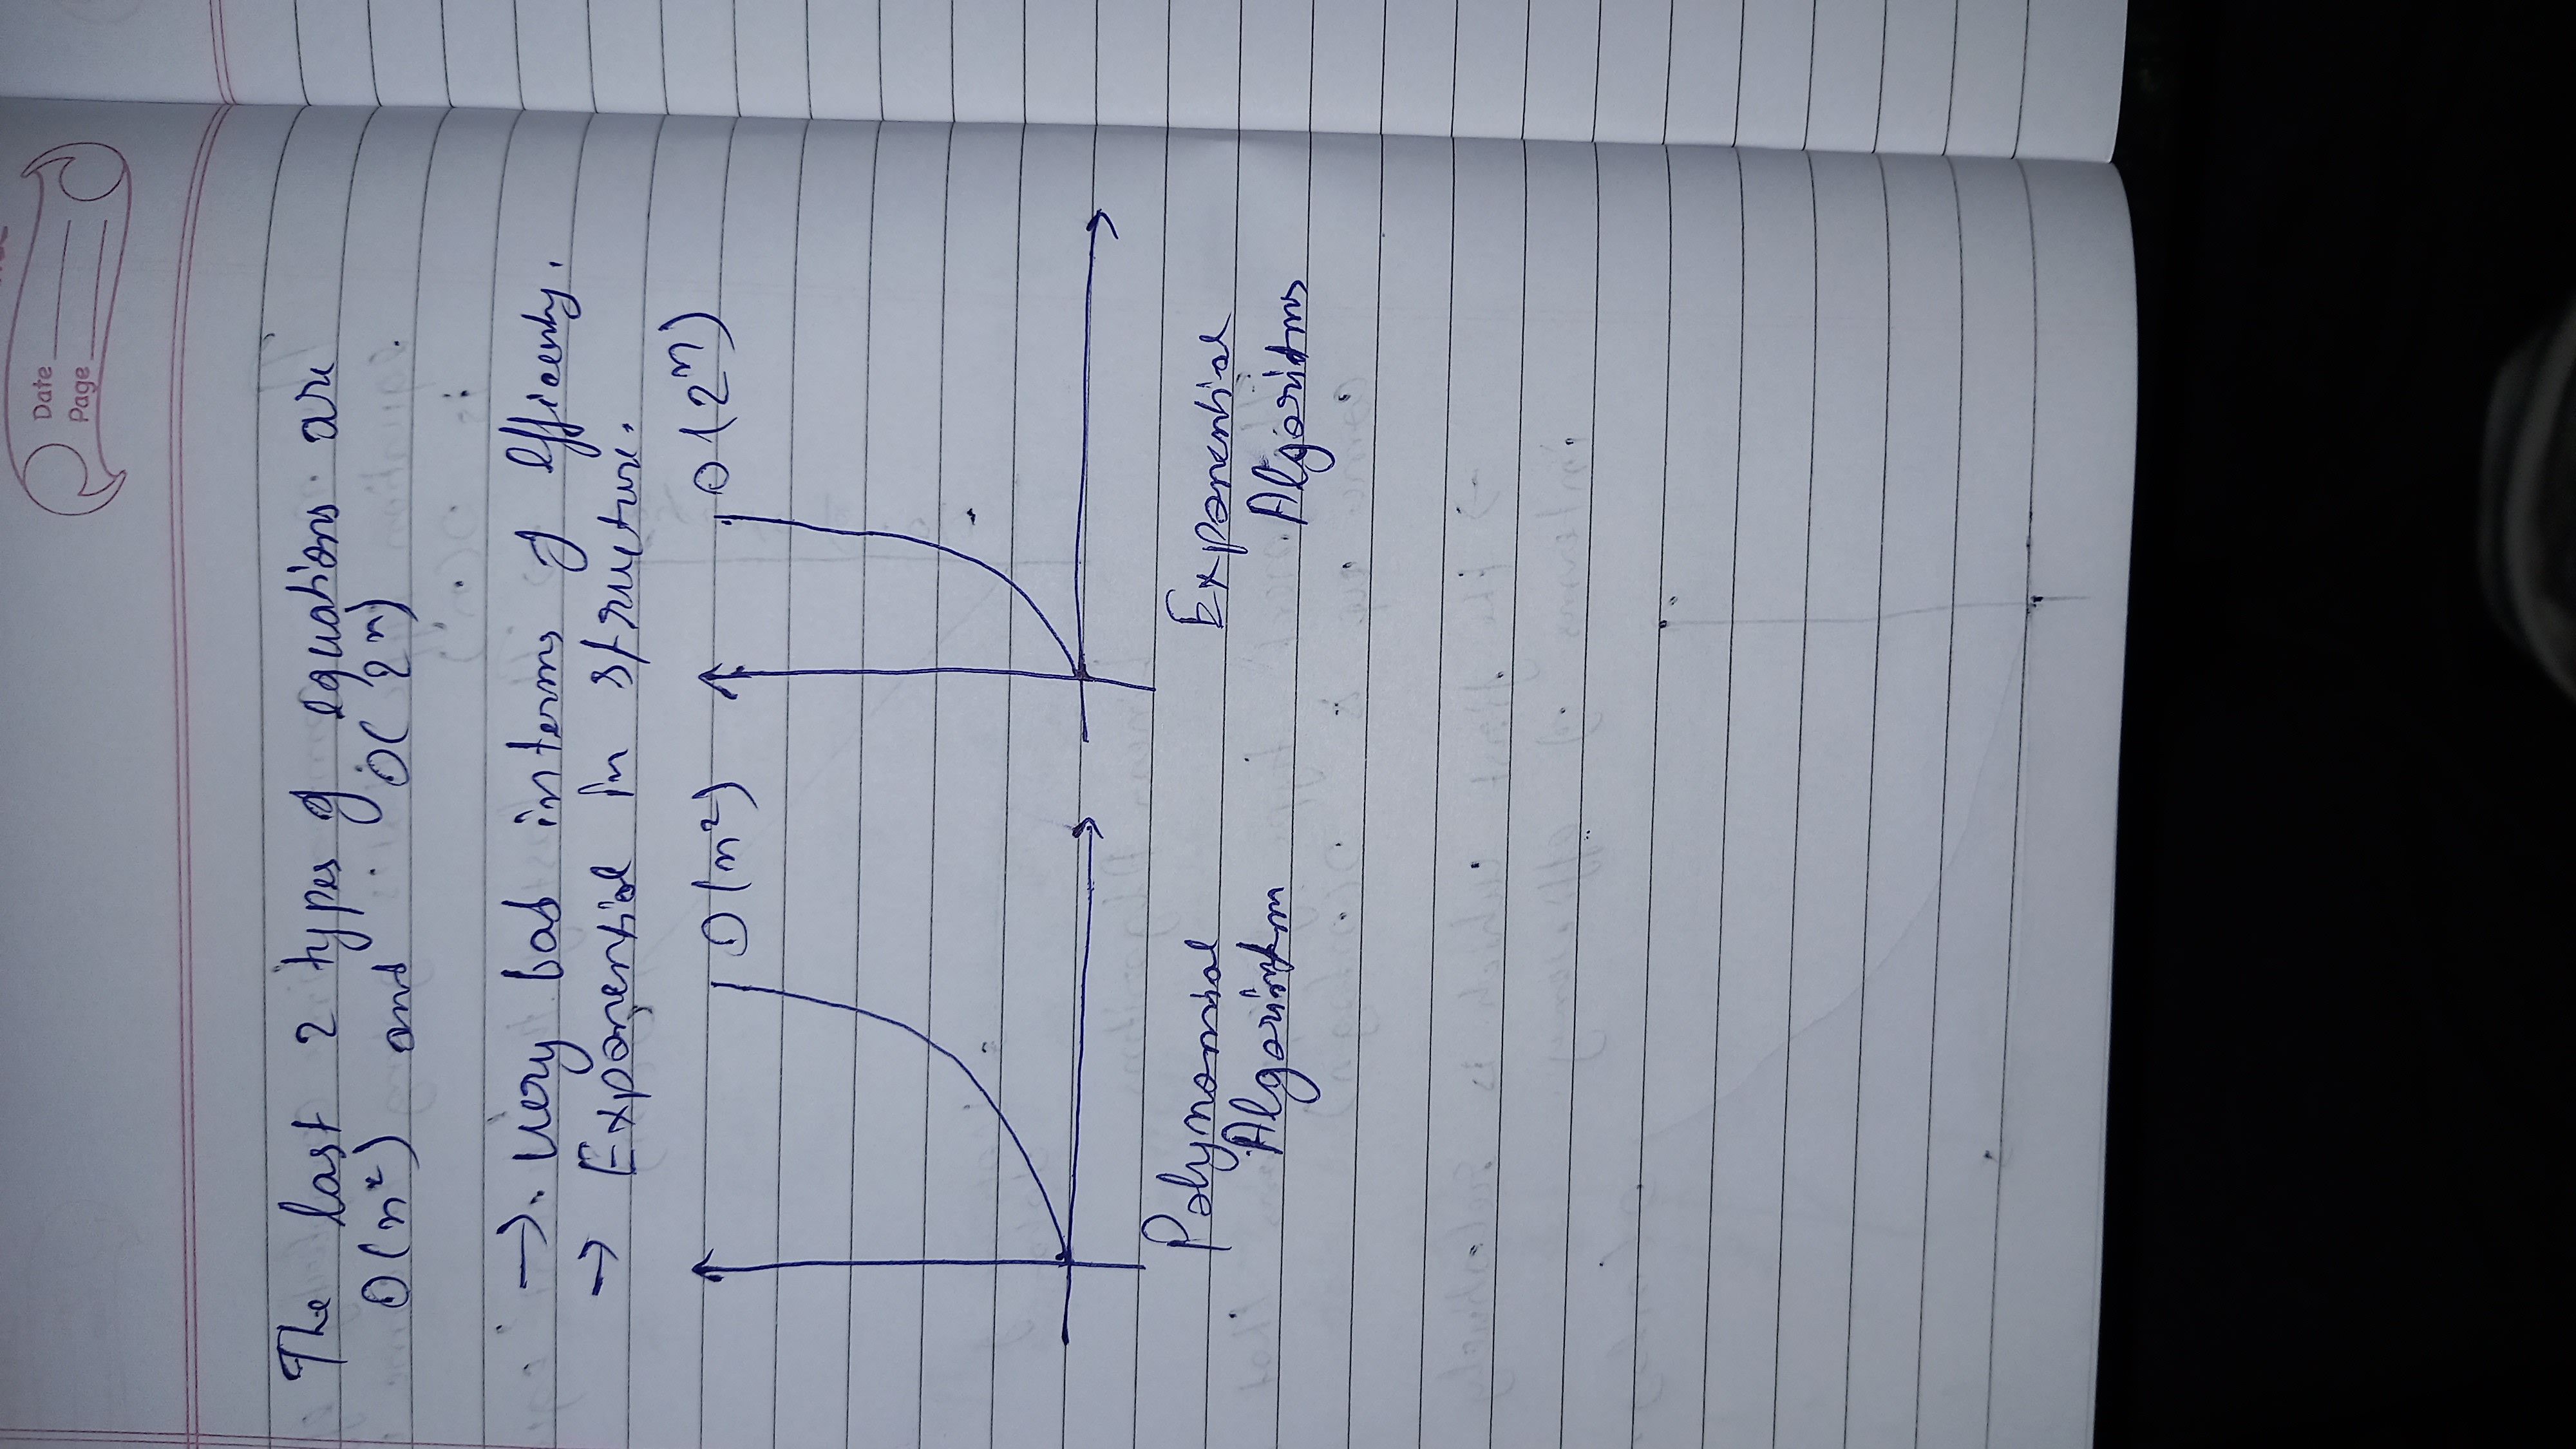 Date
Page
The last 2 types of equations are
O(n²) and O(2ⁿ)
→ Very bad interms of efficenty.
→ Exponential in structure.
O(n²)
O(2ⁿ)
Polynomial
Algorithm
Exponential
Algorithms